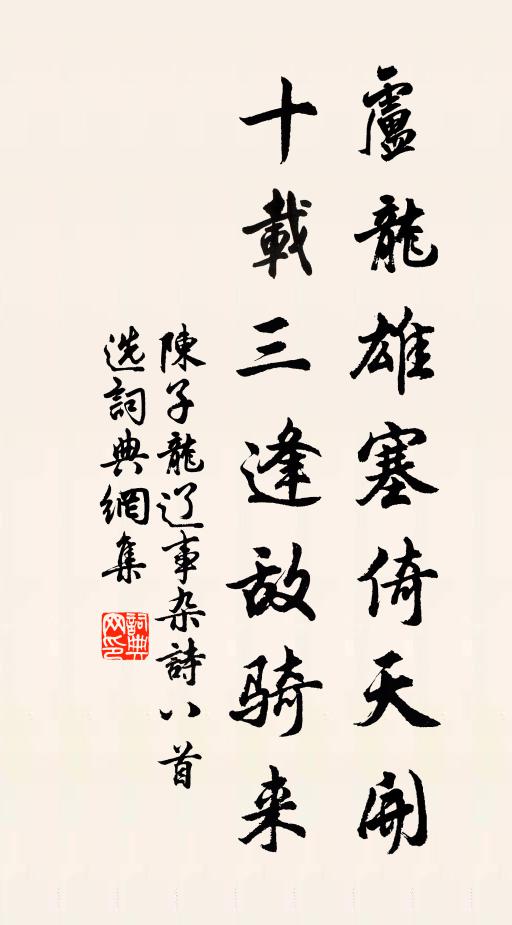 盧龍雄塞倚天開
十載三逢敌骑来
陳子龍辽事杂詩八首
选詞典網集
詞典网印